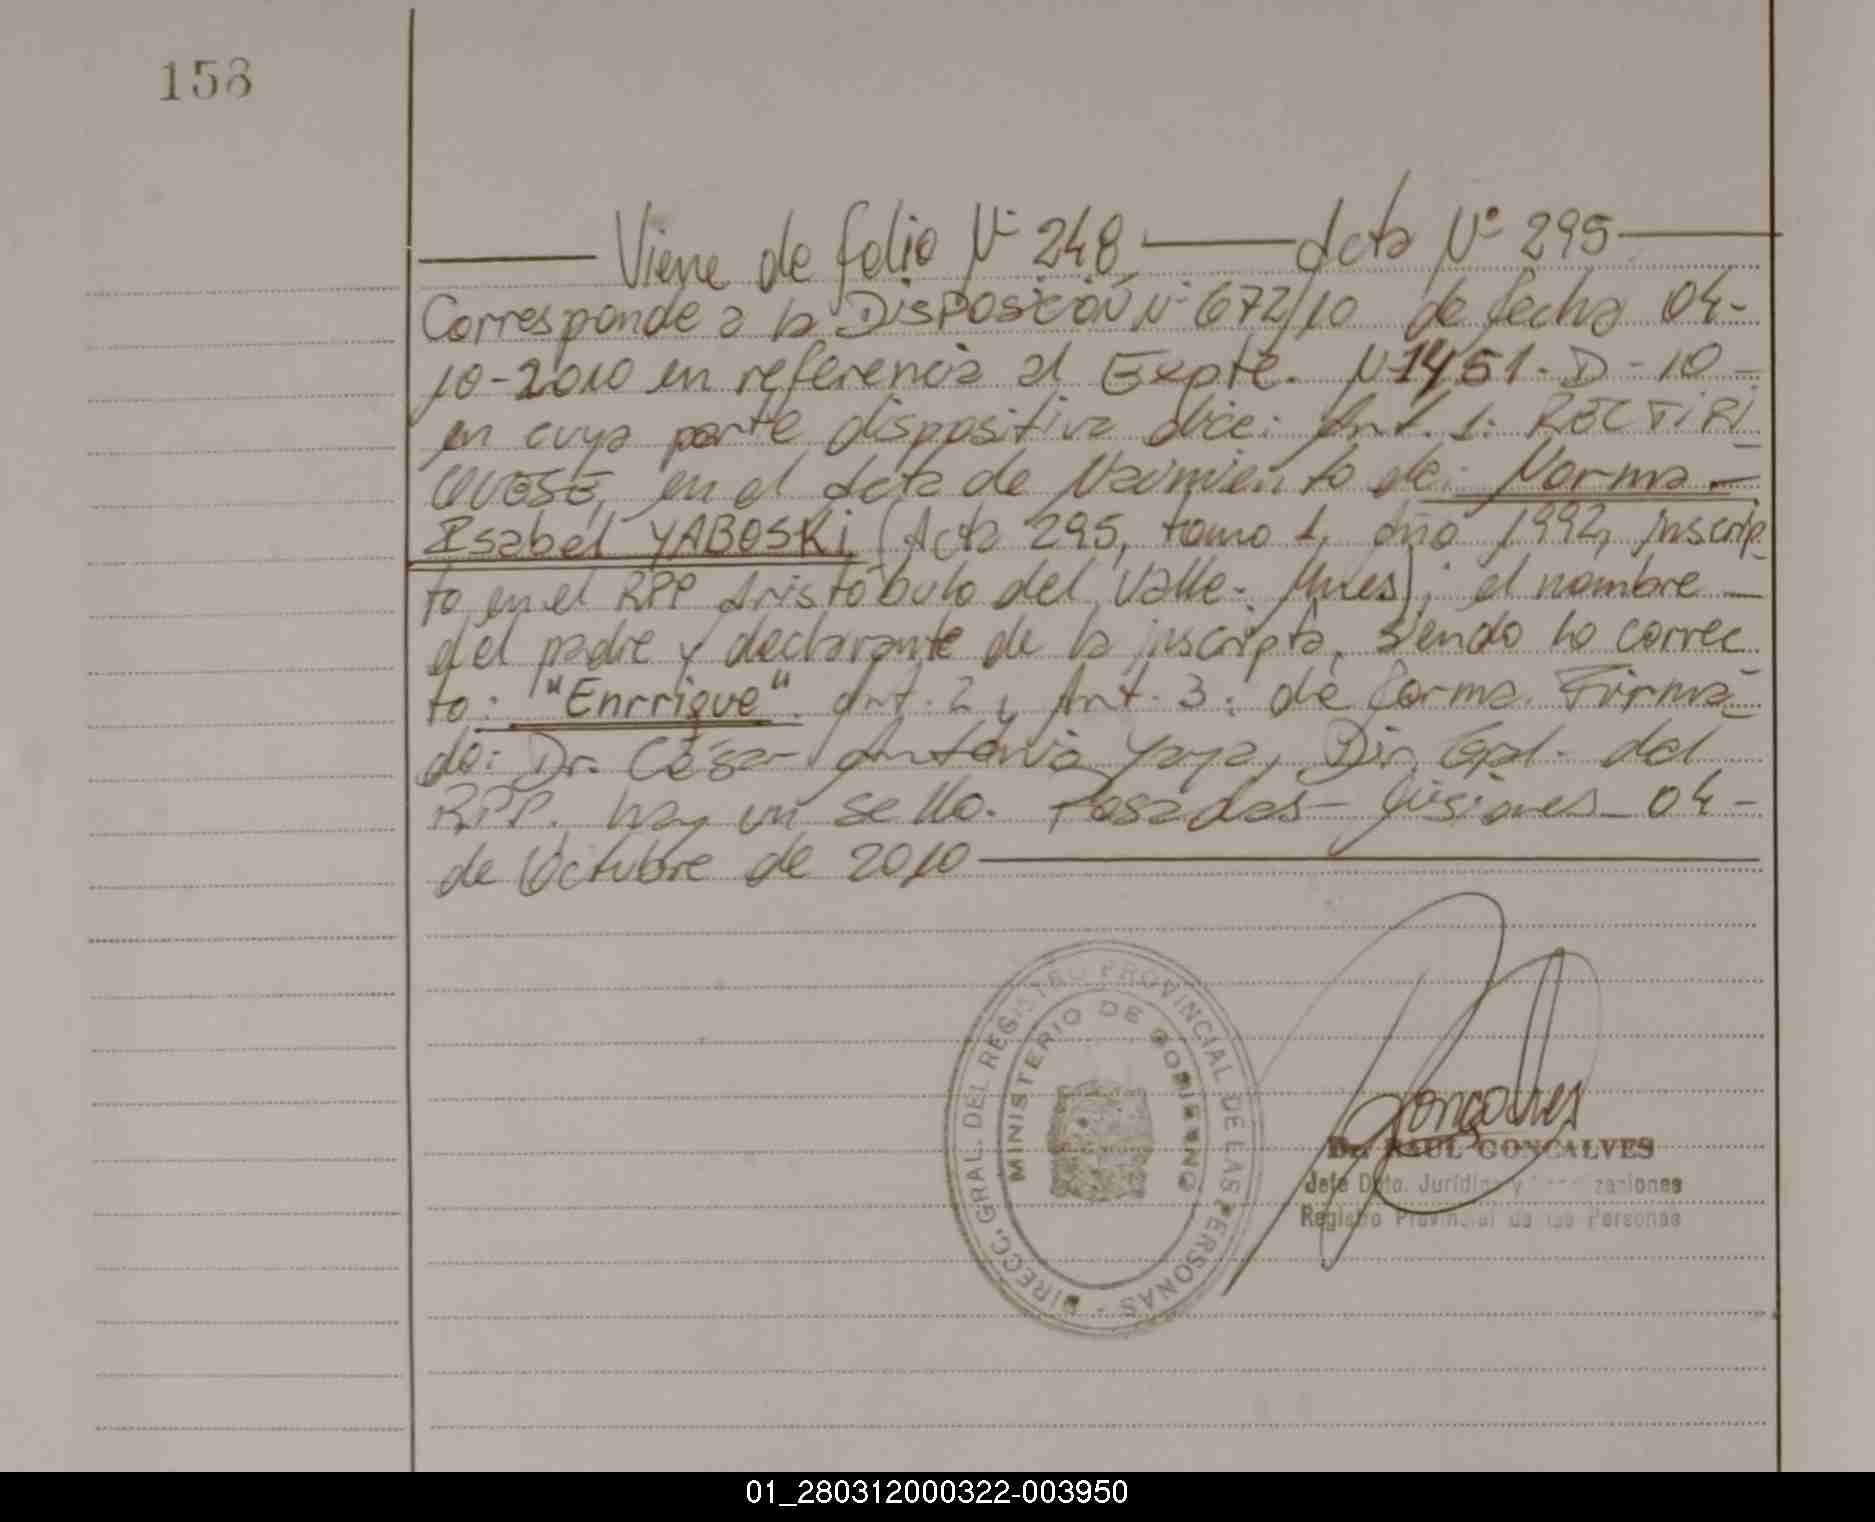 158
Viene de folio Nº 248 — Acta Nº 295
Corresponde a la DISPOSICIÓN Nº 672/10 de fecha 04-
10-2010 en referencia al Expte. Nº 1451-D-10-
en cuya parte dispositiva dice: Art. 1: RECTIFI
QUESE, en el Acta de Nacimiento de: Norma
Isabel YABOSKi (Acta 295, tomo 1, año 1992, inscrip
to en el RPP Aristobulo del Valle - Mnes); el nombre
del padre y declarante de la inscripta, siendo lo correc
to: "Enrrique". Art. 2 y Art. 3: de forma. Firma
do: Dr. César Antonio Yaya, Dir. Gral. del
RPP. hay un sello. Posadas - Misiones 04 -
de Octubre de 2010
DIRECC. GRAL. DEL REGISTRO PROVINCIAL DE LAS PERSONAS
MINISTERIO DE GOBIERNO
Gonçalves
Dr. RAUL GONCALVES
Jefe Dpto. Jurídico y
Registro Provincial de las Personas
01_280312000322-003950